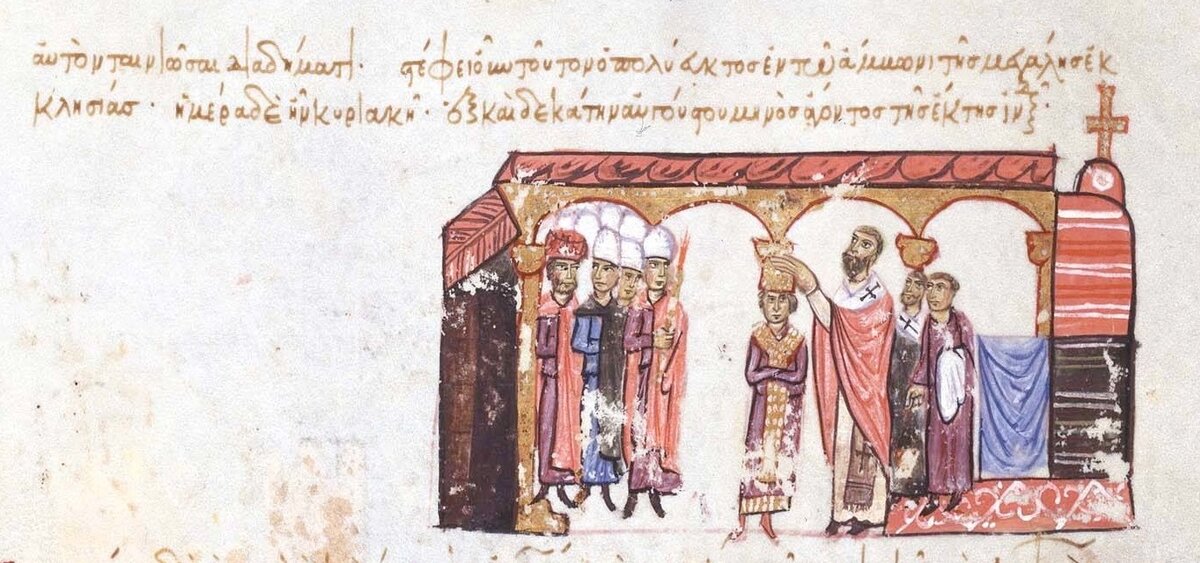 αὐτὸν ταινιῶσαι διαδήματι· στέφει οὖν τοῦτον ὁ πολύευκτος ἐν τῶ ἄμβωνι τῆς μεγάλης ἐκ
κλησίας· ἡμέρα δὲ ἦν κυριακὴ· ἑξκαιδεκάτην αὐγούστου μηνὸς ἄγοντος τῆς ἕκτης ἰνδ